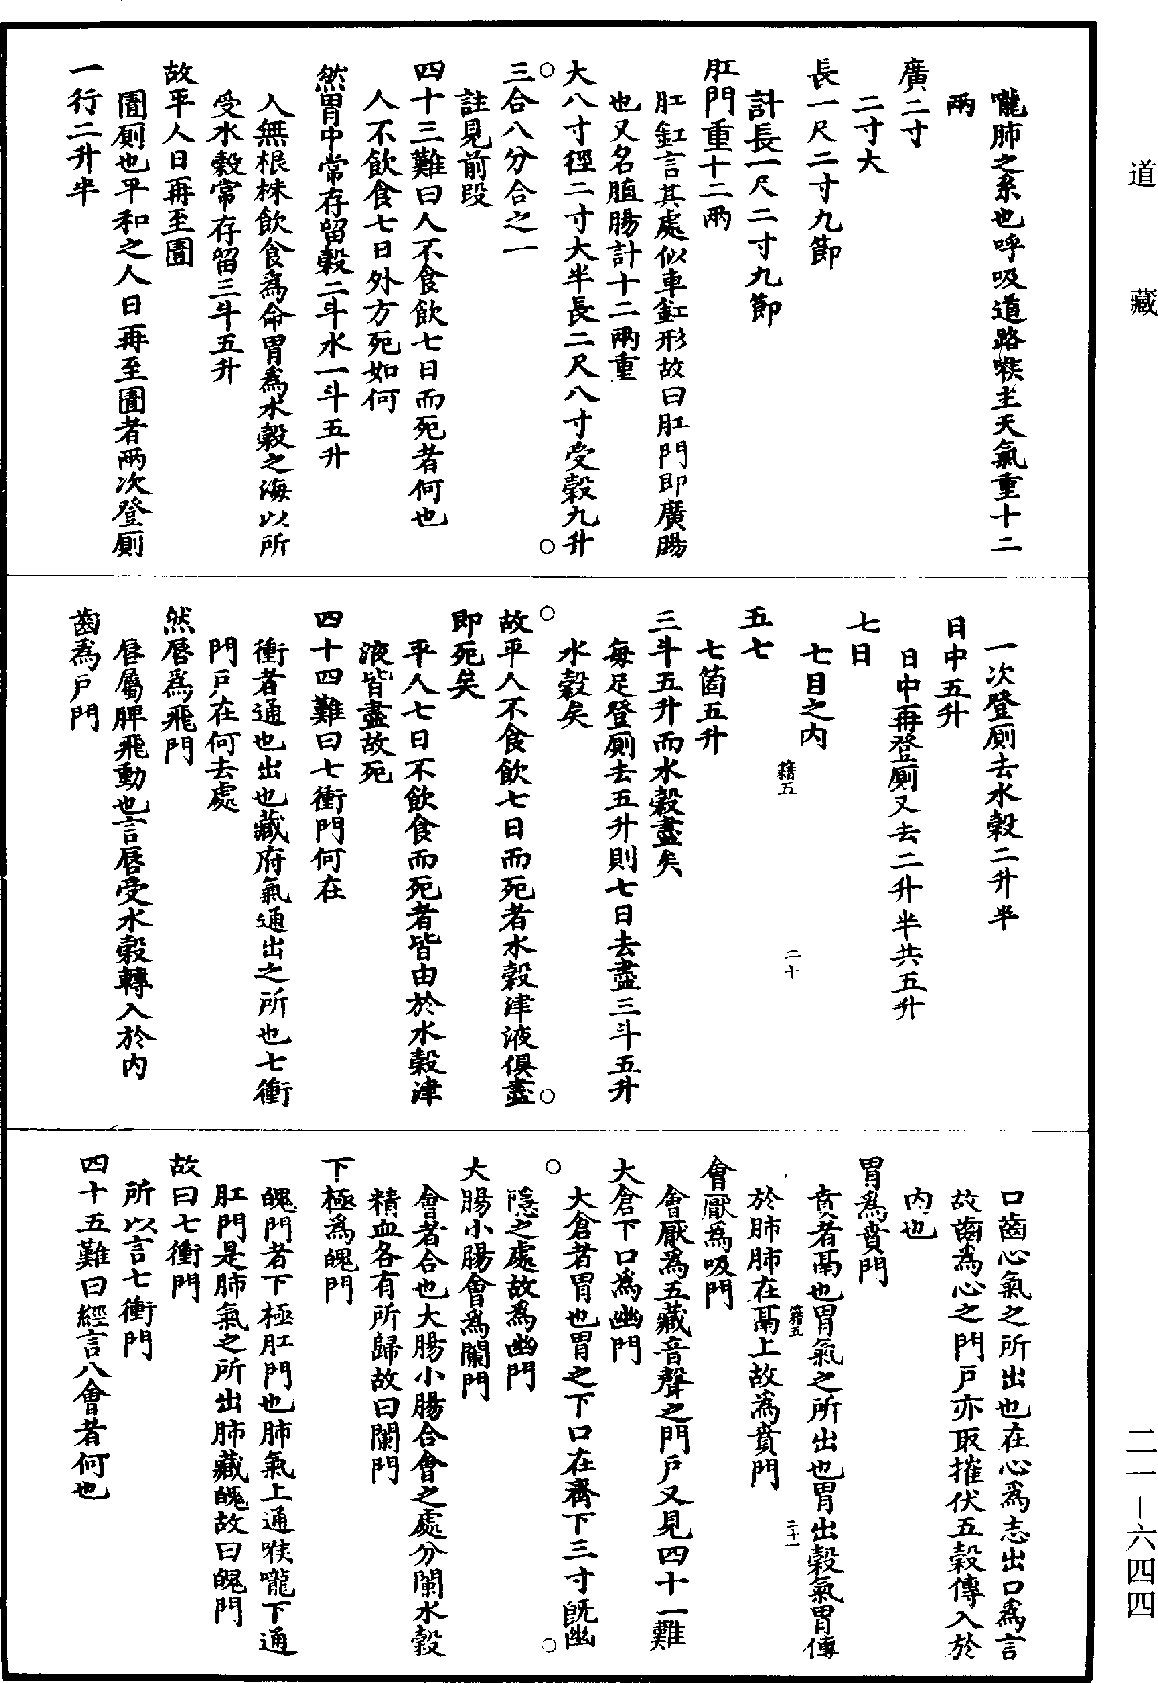 道藏
嚨肺之系也呼吸道路喉主天氣重十二
兩
廣二寸
二寸大
長一尺二寸九節
計長一尺二寸九節
肛門重十二兩
肛釭言其處似車釭形故曰肛門即廣腸
也又名䐈腸計十二兩重
大八寸徑二寸大半長二尺八寸受穀九升
三合八分合之一
註見前段
四十三難曰人不食飲七日而死者何也
人不飲食七日外方死如何
然胃中常存留穀二斗水一斗五升
人無根株飲食為命胃為水穀之海以所
受水穀常存留三斗五升
故平人日再至圊
圊厠也平和之人日再至圊者兩次登厠
一行二升半
一次登厠去水穀二升半
日中五升
日中再登厠又去二升半共五升
七日
七日之內
五七
七箇五升
三斗五升而水穀盡矣
每足登厠去五升則七日去盡三斗五升
水穀矣
故平人不食飲七日而死者水穀津液俱盡
即死矣
平人七日不飲食而死者皆由於水穀津
液皆盡故死
四十四難曰七衝門何在
衝者通也出也藏府氣通出之所也七衝
門戶在何去處
然唇為飛門
唇屬脾飛動也言唇受水穀轉入於內
齒為戶門
籍五
二十
口齒心氣之所出也在心為志出口為言
故齒為心之門戶亦取摧伏五穀傳入於
內也
胃為賁門
賁者鬲也胃氣之所出也胃出穀氣胃傳
於肺肺在鬲上故為賁門
會厭為吸門
會厭為五藏音聲之門戶又見四十一難
大倉下口為幽門
大倉者胃也胃之下口在齊下三寸既幽
隱之處故為幽門
大腸小腸會為闌門
會者合也大腸小腸合會之處分闌水穀
精血各有所歸故曰闌門
下極為魄門
魄門者下極肛門也肺氣上通喉嚨下通
肛門是肺氣之所出肺藏魄故曰魄門
故曰七衝門
所以言七衝門
四十五難曰經言八會者何也
籍五
二十一
二一—六四四